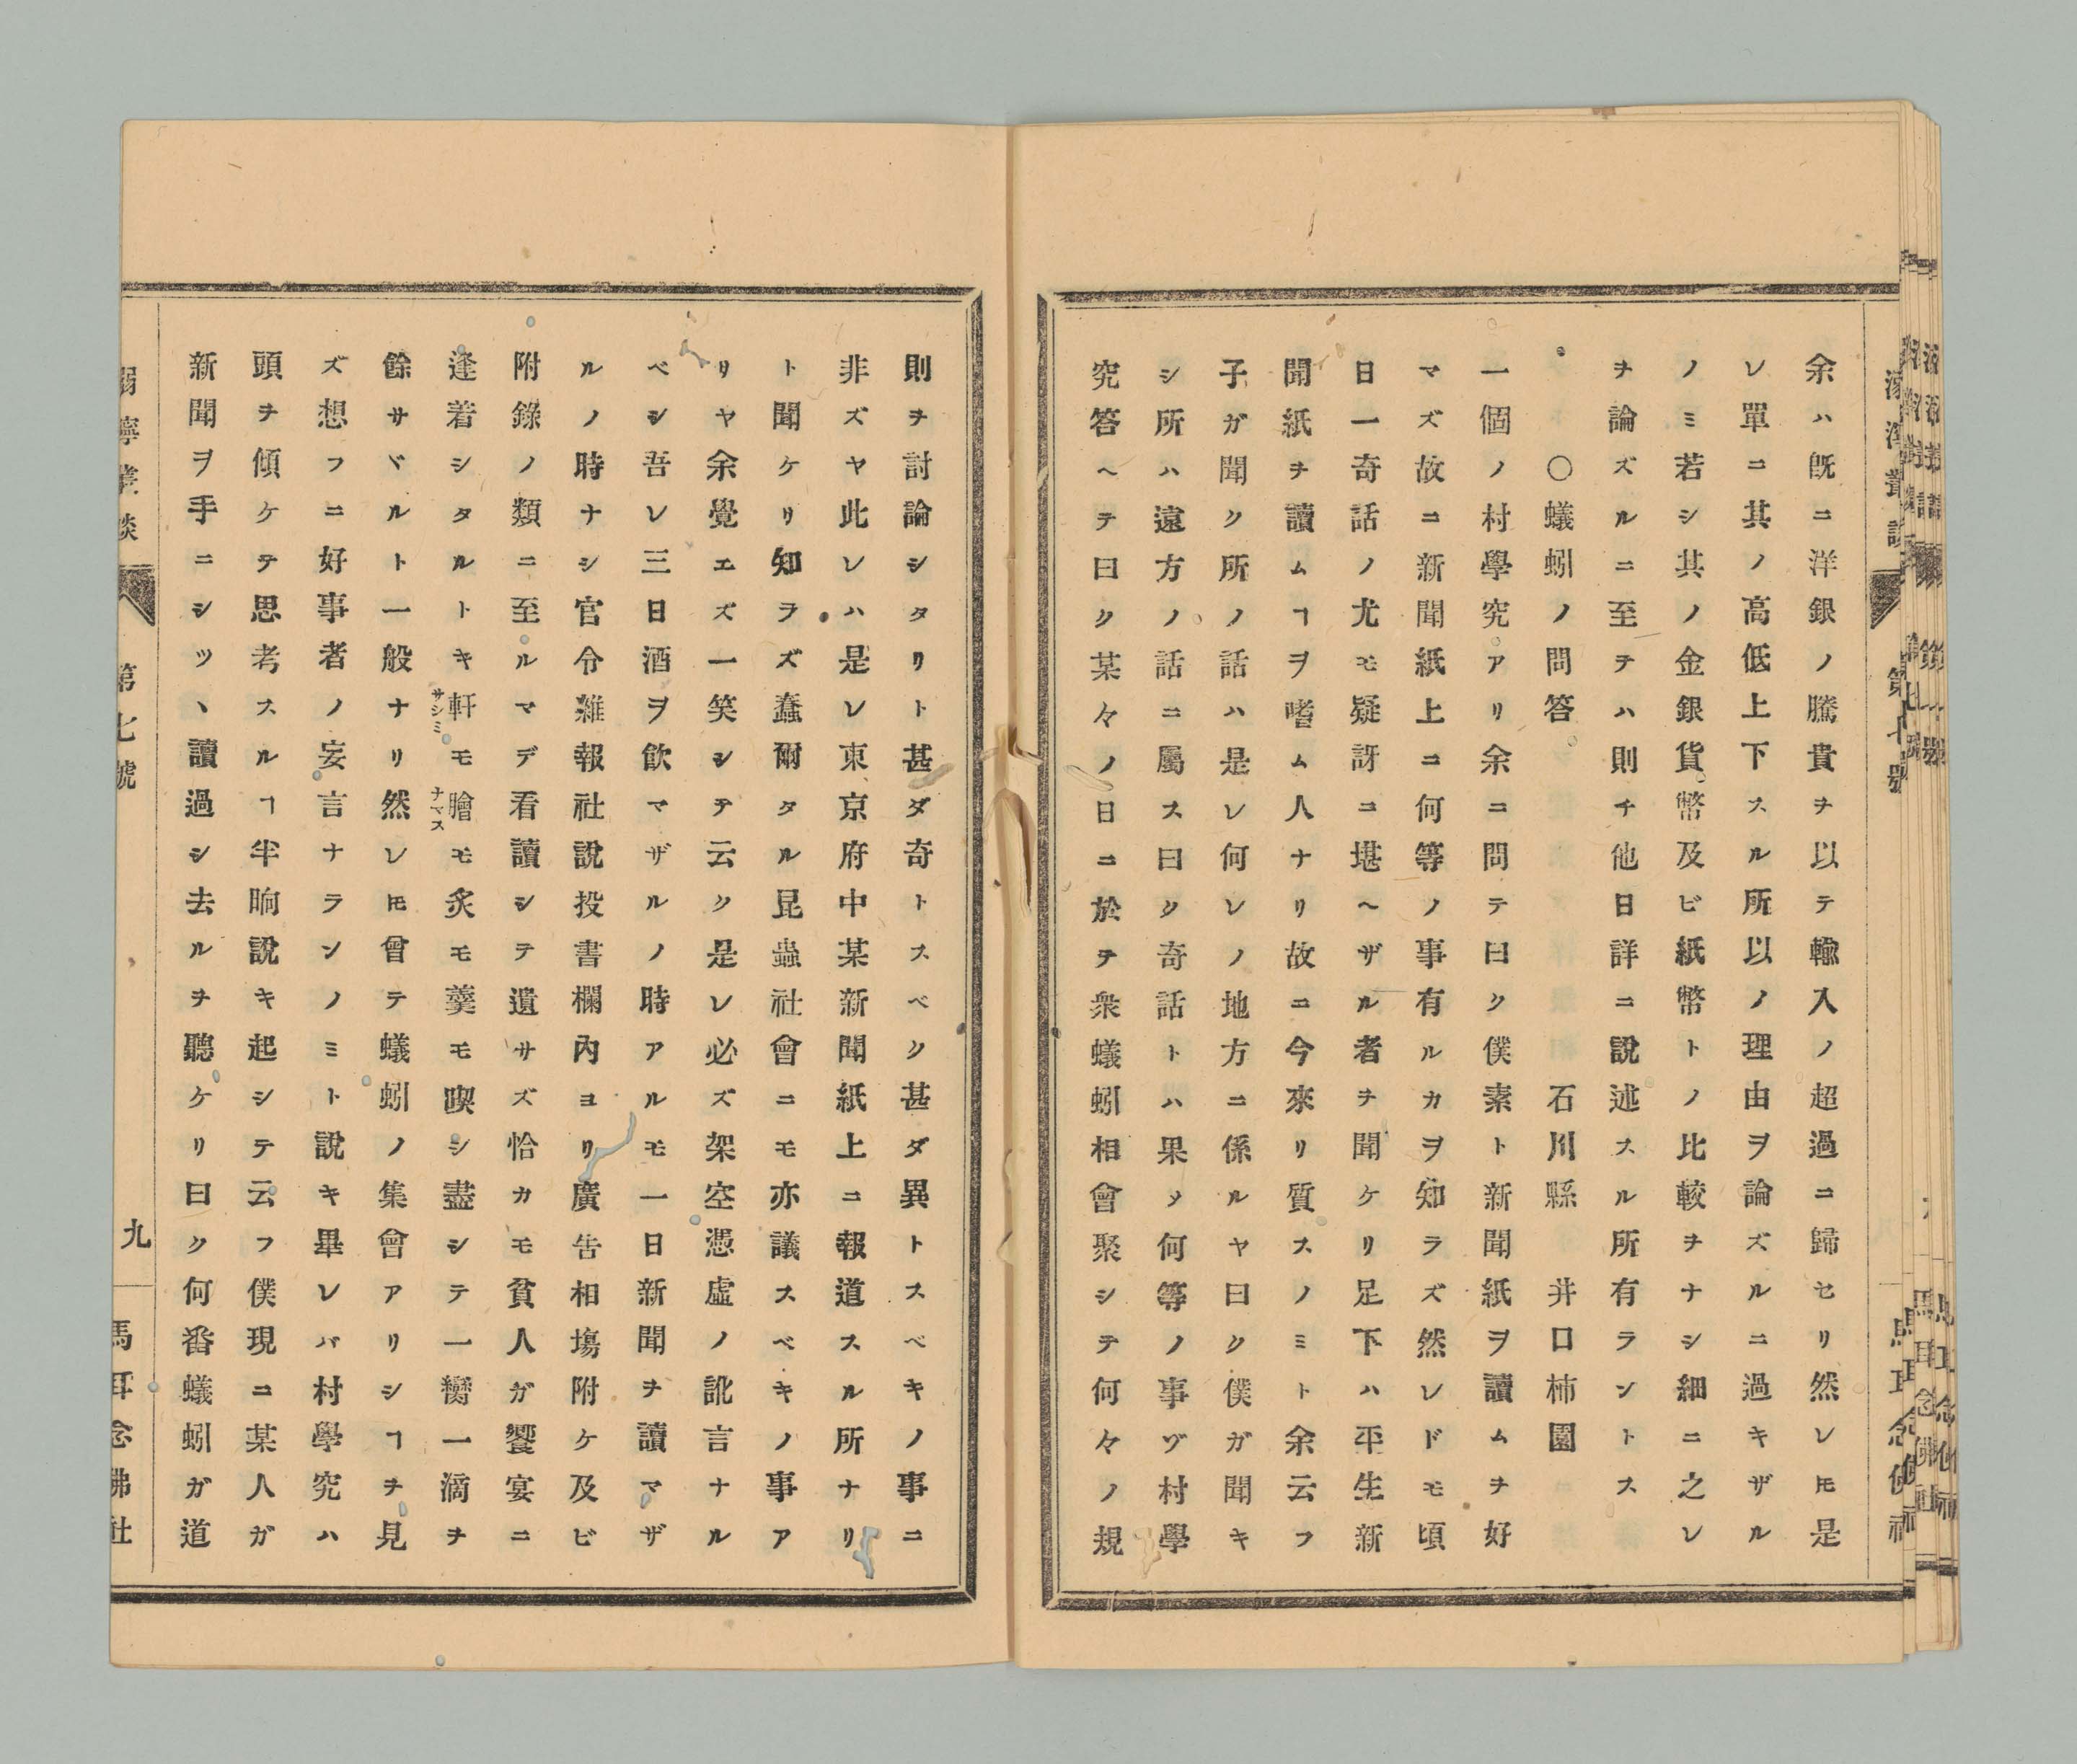 余ハ旣ニ洋銀ノ騰貴ヲ以テ輸入ノ超過ニ歸セリ然レ𪜈是
レ單ニ其ノ高低上下スル所以ノ理由ヲ論ズルニ過キザル
ノミ若シ其ノ金銀貨幣及ビ紙幣トノ比較ヲナシ細ニ之レ
ヲ論ズルニ至テハ則チ他日詳ニ說述スル所有ラントス
〇蟻蚓ノ問答 石川縣 井口柿園
一個ノ村學究アリ余ニ問テ曰ク僕素ト新聞紙ヲ讀ムヲ好
マズ故ニ新聞紙上ニ何等ノ事有ルカヲ知ラズ然レドモ頃
日一奇話ノ尤モ疑訝ニ堪ヘザル者ヲ聞ケリ足下ハ平生新
聞紙ヲ讀ムヿヲ嗜ム人ナリ故ニ今來リ質スノミト余云フ
子ガ聞ク所ノ話ハ是レ何レノ地方ニ係ルヤ曰ク僕ガ聞キ
シ所ハ遠方ノ話ニ屬ス曰ク奇話トハ果ソ何等ノ事ヅ村學
究答ヘテ曰ク某々ノ日ニ於テ衆蟻蚓相會聚シテ何々ノ規
則ヲ討論シタリト甚ダ奇トスベク甚ダ異トスベキノ事ニ
非ズヤ此レハ是レ東京府中某新聞紙上ニ報道スル所ナリ
ト聞ケリ知ラズ蠢爾タル昆蟲社會ニモ亦議スベキノ事ア
リヤ余覺エズ一笑シテ云ク是レ必ズ架空憑虛ノ訛言ナル
ベシ吾レ三日酒ヲ飮マザルノ時アルモ一日新聞ヲ讀マザ
ルノ時ナシ官令雜報社說投書欄內ヨリ廣吿相塲附ケ及ビ
附錄ノ類ニ至ルマデ看讀シテ遺サズ恰カモ貧人ガ饗宴ニ
逢着シタルトキ軒サシミモ膾ナマスモ炙モ羹モ喫シ盡シテ一臠一滴ヲ
餘サヾルト一般ナリ然レ𪜈曾テ蟻蚓ノ集會アリシヿヲ見
ズ想フニ好事者ノ妄言ナランノミト說キ畢レバ村學究ハ
頭ヲ傾ケテ思考スルヿ半晌說キ起シテ云フ僕現ニ某人ガ
新聞ヲ手ニシツヽ讀過シ去ルヲ聽ケリ曰ク何番蟻蚓ガ道
第七號
九
馬耳念佛社